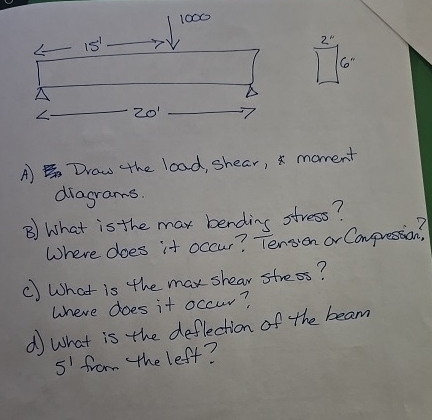 1000
15'
2"
6"
20'
A) Draw the load, shear, & moment
diagrams.
B) What is the max bending stress?
Where does it occur? Tension or Compression?
c) What is the max shear stress?
Where does it occur?
d) What is the deflection of the beam
5' from the left?